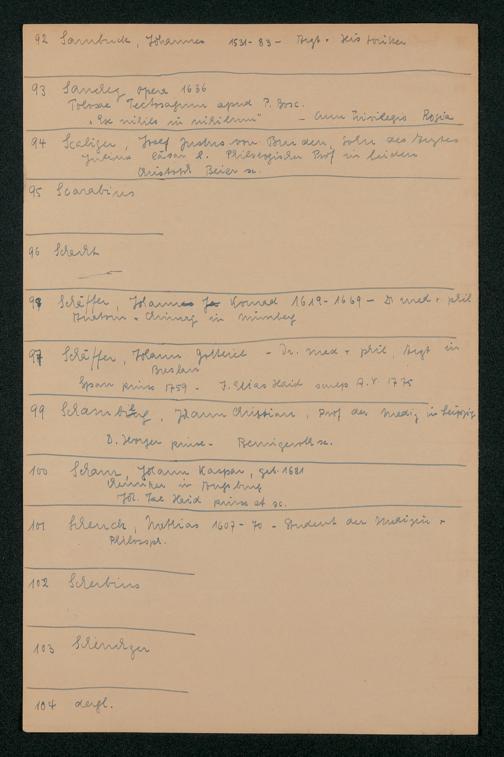 92 Sambuck, Johannes 1531-83- Arzt + Historiker
93 Sanchez opera 1636
Tolosae Tectosagum apud P. Bosc.
"Ex nihilo in nihilum" - Cum Privilegio Regis
94 Scaliger, Josef Justus von Burden, Sohn des Arztes
Julius Cäsar S. Philologischer Prof in Leiden
Christoph Beier sc.
95 Scarabius
96 Schacht
98 Schäffer, Johannes Konrad 1619-1669 - Dr med + phil
Anatom + Chirurg in Nürnberg
97 Schäffer, Johann Gottlieb - Dr. med + phil, Arzt in
Breslau
Spaen pinx 1759 - J. Elias Haid sculps A.V. 1775
99 Schamberg, Johann Christian, Prof der Medizin in Leipzig
D. Hoyer pinx - Bernigeroth sc.
100 Scharr, Johann Kaspar, geb. 1681
Chemiker in Augsburg
Joh. Jac Haid pinx et sc.
101 Schenck, Mathias 1607-70 - Student der Medizin +
Philosoph.
102 Scherbius
103 Scheuchzer
104 dergl.